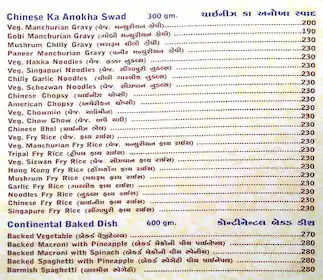 Chinese Ka Anokha Swad 300 gm. ચાઇનીઝ કા અનોખા સ્વાદ
Veg. Manchurian Gravy (વેજ. મન્ચુરીયન ગ્રેવી) 200
Gobi Manchurian Gravy (ગોબી મન્ચુરીયન ગ્રેવી) 190
Mushrum Chilly Gravy (મશરૂમ ચીલી ગ્રેવી) 230
Paneer Manchurian Gravy (પનીર મન્ચુરીયન ગ્રેવી) 230
Veg. Hakka Noodles (વેજ. હક્કા નુડલ્સ) 230
Veg. Singaupri Noodles (વેજ. સીંગાપુરી નુડલ્સ) 230
Chilly Garlic Noodles (ચીલી ગારલીક નુડલ્સ) 230
Veg. Schezwan Noodles (વેજ. સેઝવાન નુડલ્સ) 230
Chinese Chopsy (ચાઇનીઝ ચોપ્સી) 230
American Chopsy (અમેરીકન ચોપ્સી) 230
Veg. Chowmin (વેજ. ચાઉમીન) 230
Veg. Chow Chow (વેજ. ચાઉ ચાઉ) 230
Chinese Bhel (ચાઇનીઝ ભેલ) 230
Veg. Fry Rice (વેજ. ફ્રાય રાઇસ) 230
Veg. Manchurian Fry Rice (વેજ. મન્ચુરીયન ફ્રાય રાઇસ) 230
Tripal Fry Rice (ટ્રીપલ ફ્રાય રાઇસ) 230
Veg. Sizwan Fry Rice (વેજ. સીઝવાન ફ્રાય રાઇસ) 230
Hong Kong Fry Rice (હોંગકોંગ ફ્રાય રાઇસ) 230
Mushrum Fry Rice (મશરૂમ ફ્રાય રાઇસ) 230
Garlic Fry Rice (ગારલીક ફ્રાય રાઇસ) 230
Noodles Fry Rice (નુડલ્સ ફ્રાય રાઇસ) 230
Chinese Fry Rice (ચાઇનીઝ ફ્રાય રાઇસ) 230
Singapure Fry Rice (સીંગાપુરી ફ્રાય રાઇસ) 230
Continental Baked Dish 600 gm. કોન્ટીનેન્ટલ બેકડ ડીશ
Backed Vegetable (બેકડ વેજીટેબલ) 270
Backed Macroni with Pineapple (બેકડ મેક્રોની વીથ પાઇનેપલ) 280
Backed Macroni with Spinach (બેકડ મેક્રોની વીથ સ્પીનચ) 280
Backed Spaghetti with Pineapple (બેકડ સ્પેગેટી વીથ પાઇનેપલ) 280
Barmish Spaghetti (બારમીસ સ્પેગેટી) 280